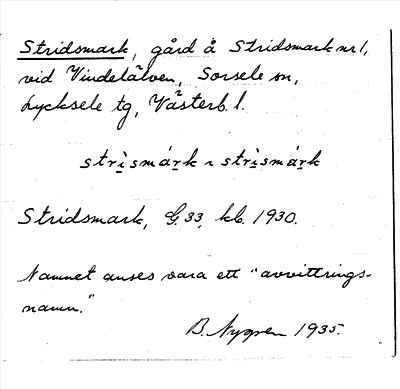 Stridsmark, gård å Stridsmark nr 1,
vid Vindelälven, Sorsele sn,
Lycksele tg, Västerb. l.
strìsmárk ~ strìsmárk
Stridsmark, G. 33, kb. 1930.
Namnet anses vara ett "avvittrings-
namn."
B. Nygren 1935.